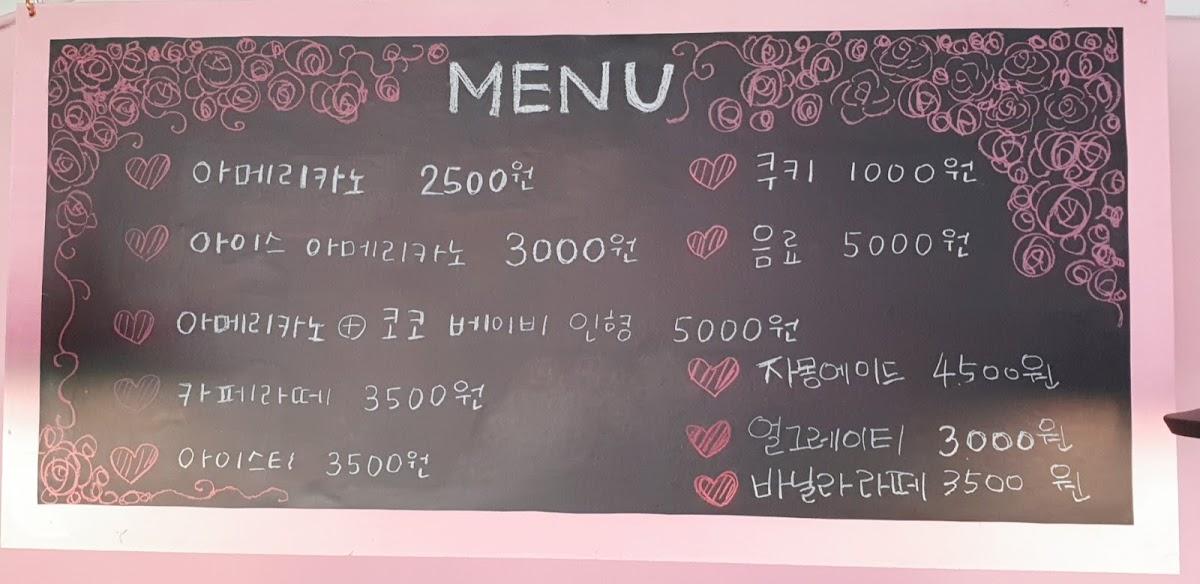 MENU
아메리카노 2500원
아이스 아메리카노 3000원
아메리카노 ⊕ 코코 베이비 인형 5000원
카페라떼 3500원
아이스티 3500원
쿠키 1000원
음료 5000원
자몽에이드 4500원
얼그레이티 3000원
바닐라라떼 3500 원